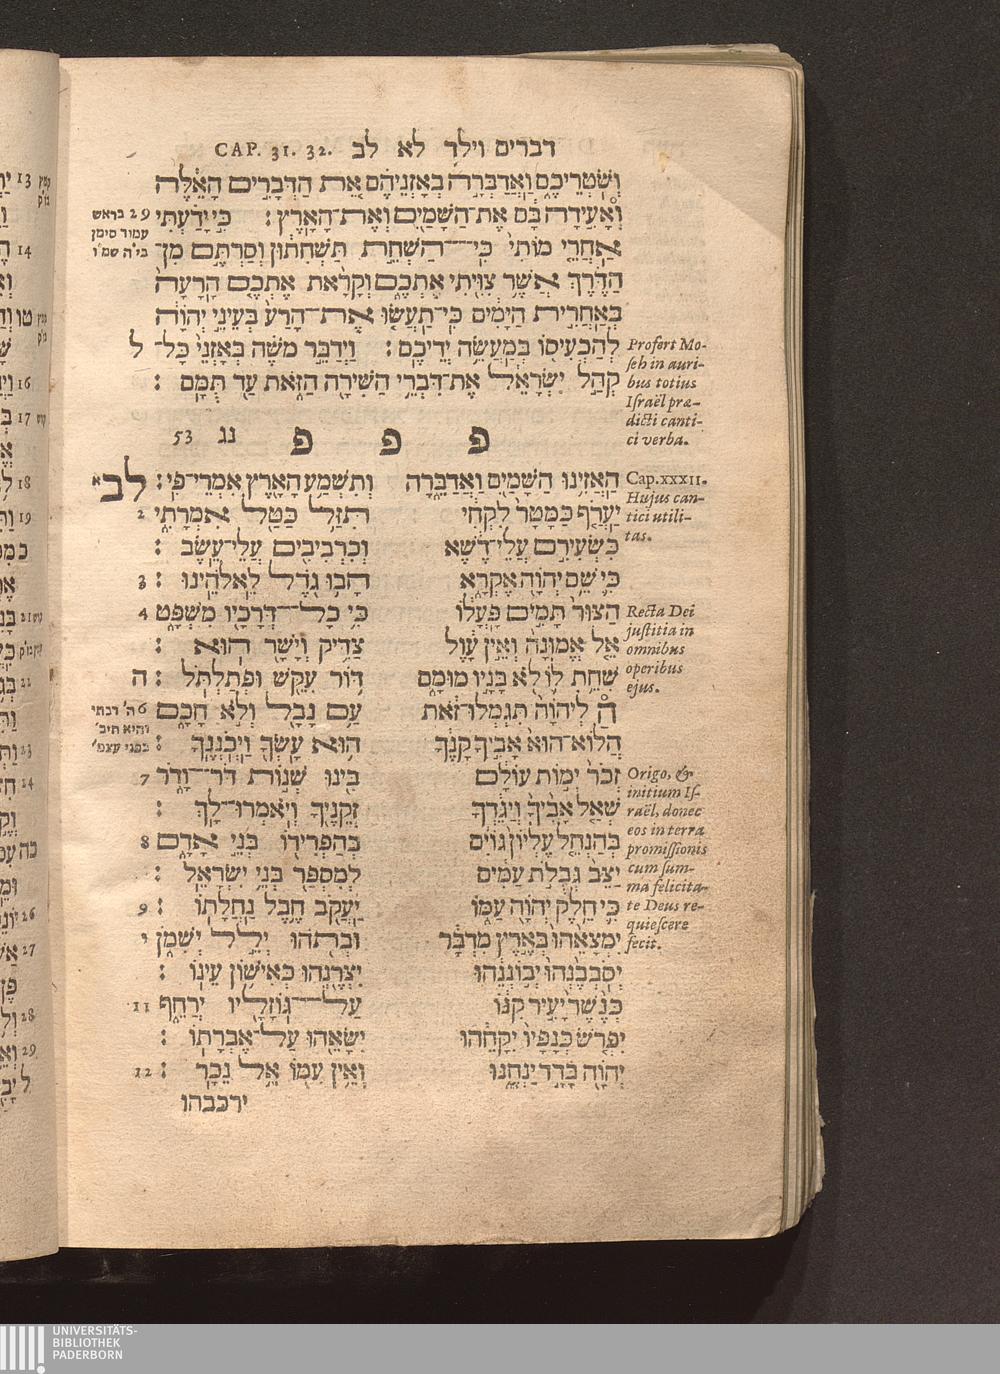 CAP. 31. 32. דברים וילך לא לב
וְשֹׁטְרֵיכֶם וַאֲדַבְּרָה בְאָזְנֵיהֶם אֵת הַדְּבָרִים הָאֵלֶּה
וְאָעִידָה בָּם אֶת־הַשָּׁמַיִם וְאֶת־הָאָרֶץ : כִּי יָדַעְתִּי
29 בראש
עמוד סימן
בי״ה שמ״ו
אַחֲרֵי מוֹתִי כִּי־הַשְׁחֵת תַּשְׁחִתוּן וְסַרְתֶּם מִן־
הַדֶּרֶךְ אֲשֶׁר צִוִּיתִי אֶתְכֶם וְקָרָאת אֶתְכֶם הָרָעָה
בְּאַחֲרִית הַיָּמִים כִּי־תַעֲשׂוּ אֶת־הָרַע בְּעֵינֵי יְהוָֹה
לְהַכְעִיסוֹ בְּמַעֲשֵׂה יְדֵיכֶם : וַיְדַבֵּר מֹשֶׁה בְּאָזְנֵי כָּל־ ל
קְהַל יִשְׂרָאֵל אֶת־דִּבְרֵי הַשִּׁירָה הַזֹּאת עַד תֻּמָּם :
Profert Mo-
ſeh in auri-
bus totius
Iſraël præ-
dicti canti-
ci verba.
פ פ פ נג 53
הַאֲזִינוּ הַשָּׁמַיִם וַאֲדַבֵּרָה וְתִשְׁמַע הָאָרֶץ אִמְרֵי־פִי : לב א
יַעֲרֹף כַּמָּטָר לִקְחִי תִּזַּל כַּטַּל אִמְרָתִי 2
כִּשְׂעִירִם עֲלֵי־דֶשֶׁא וְכִרְבִיבִים עֲלֵי־עֵשֶׂב :
כִּי שֵׁם יְהוָֹה אֶקְרָא הָבוּ גֹדֶל לֵאלֹהֵינוּ : 3
הַצּוּר תָּמִים פָּעֳלוֹ כִּי כָל־דְּרָכָיו מִשְׁפָּט 4
אֵל אֱמוּנָה וְאֵין עָוֶל צַדִּיק וְיָשָׁר הוּא :
שִׁחֵת לוֹ לֹא בָּנָיו מוּמָם דּוֹר עִקֵּשׁ וּפְתַלְתֹּל : ה
הֲ לְיהוָֹה תִּגְמְלוּ־זֹאת עַם נָבָל וְלֹא חָכָם
6 ה׳ רבתי
והיא תיב׳
בפני עצמ׳
הֲלוֹא־הוּא אָבִיךָ קָּנֶךָ הוּא עָשְׂךָ וַיְכֹנְנֶךָ :
זְכֹר יְמוֹת עוֹלָם בִּינוּ שְׁנוֹת דֹּר־וָדֹר 7
שְׁאַל אָבִיךָ וְיַגֵּדְךָ זְקֵנֶיךָ וְיֹאמְרוּ־לָךְ :
בְּהַנְחֵל עֶלְיוֹן גּוֹיִם בְּהַפְרִידוֹ בְּנֵי אָדָם 8
יַצֵּב גְּבֻלֹת עַמִּים לְמִסְפַּר בְּנֵי יִשְׂרָאֵל :
כִּי חֵלֶק יְהוָֹה עַמּוֹ יַעֲקֹב חֶבֶל נַחֲלָתוֹ : 9
יִמְצָאֵהוּ בְּאֶרֶץ מִדְבָּר וּבְתֹהוּ יְלֵל יְשִׁמֹן י
יְסֹבְבֶנְהוּ יְבוֹנְנֵהוּ יִצְּרֶנְהוּ כְּאִישׁוֹן עֵינוֹ :
כְּנֶשֶׁר יָעִיר קִנּוֹ עַל־גּוֹזָלָיו יְרַחֵף 11
יִפְרֹשׂ כְּנָפָיו יִקָּחֵהוּ יִשָּׂאֵהוּ עַל־אֶבְרָתוֹ :
יְהוָֹה בָּדָד יַנְחֶנּוּ וְאֵין עִמּוֹ אֵל נֵכָר : 12
ירכבהו
Cap.xxxii.
Hujus can-
tici utili-
tas.
Recta Dei
juſtitia in
omnibus
operibus
ejus.
Origo, &
initium Iſ-
raël, donec
eos in terra
promiſſionis
cum ſum-
ma felicita-
te Deus re-
quieſcere
fecit.
13
14
טו
16
17
18
19
21
22
23
24
כה
26
27
28
29
ל
UNIVERSITÄTS-
BIBLIOTHEK
PADERBORN